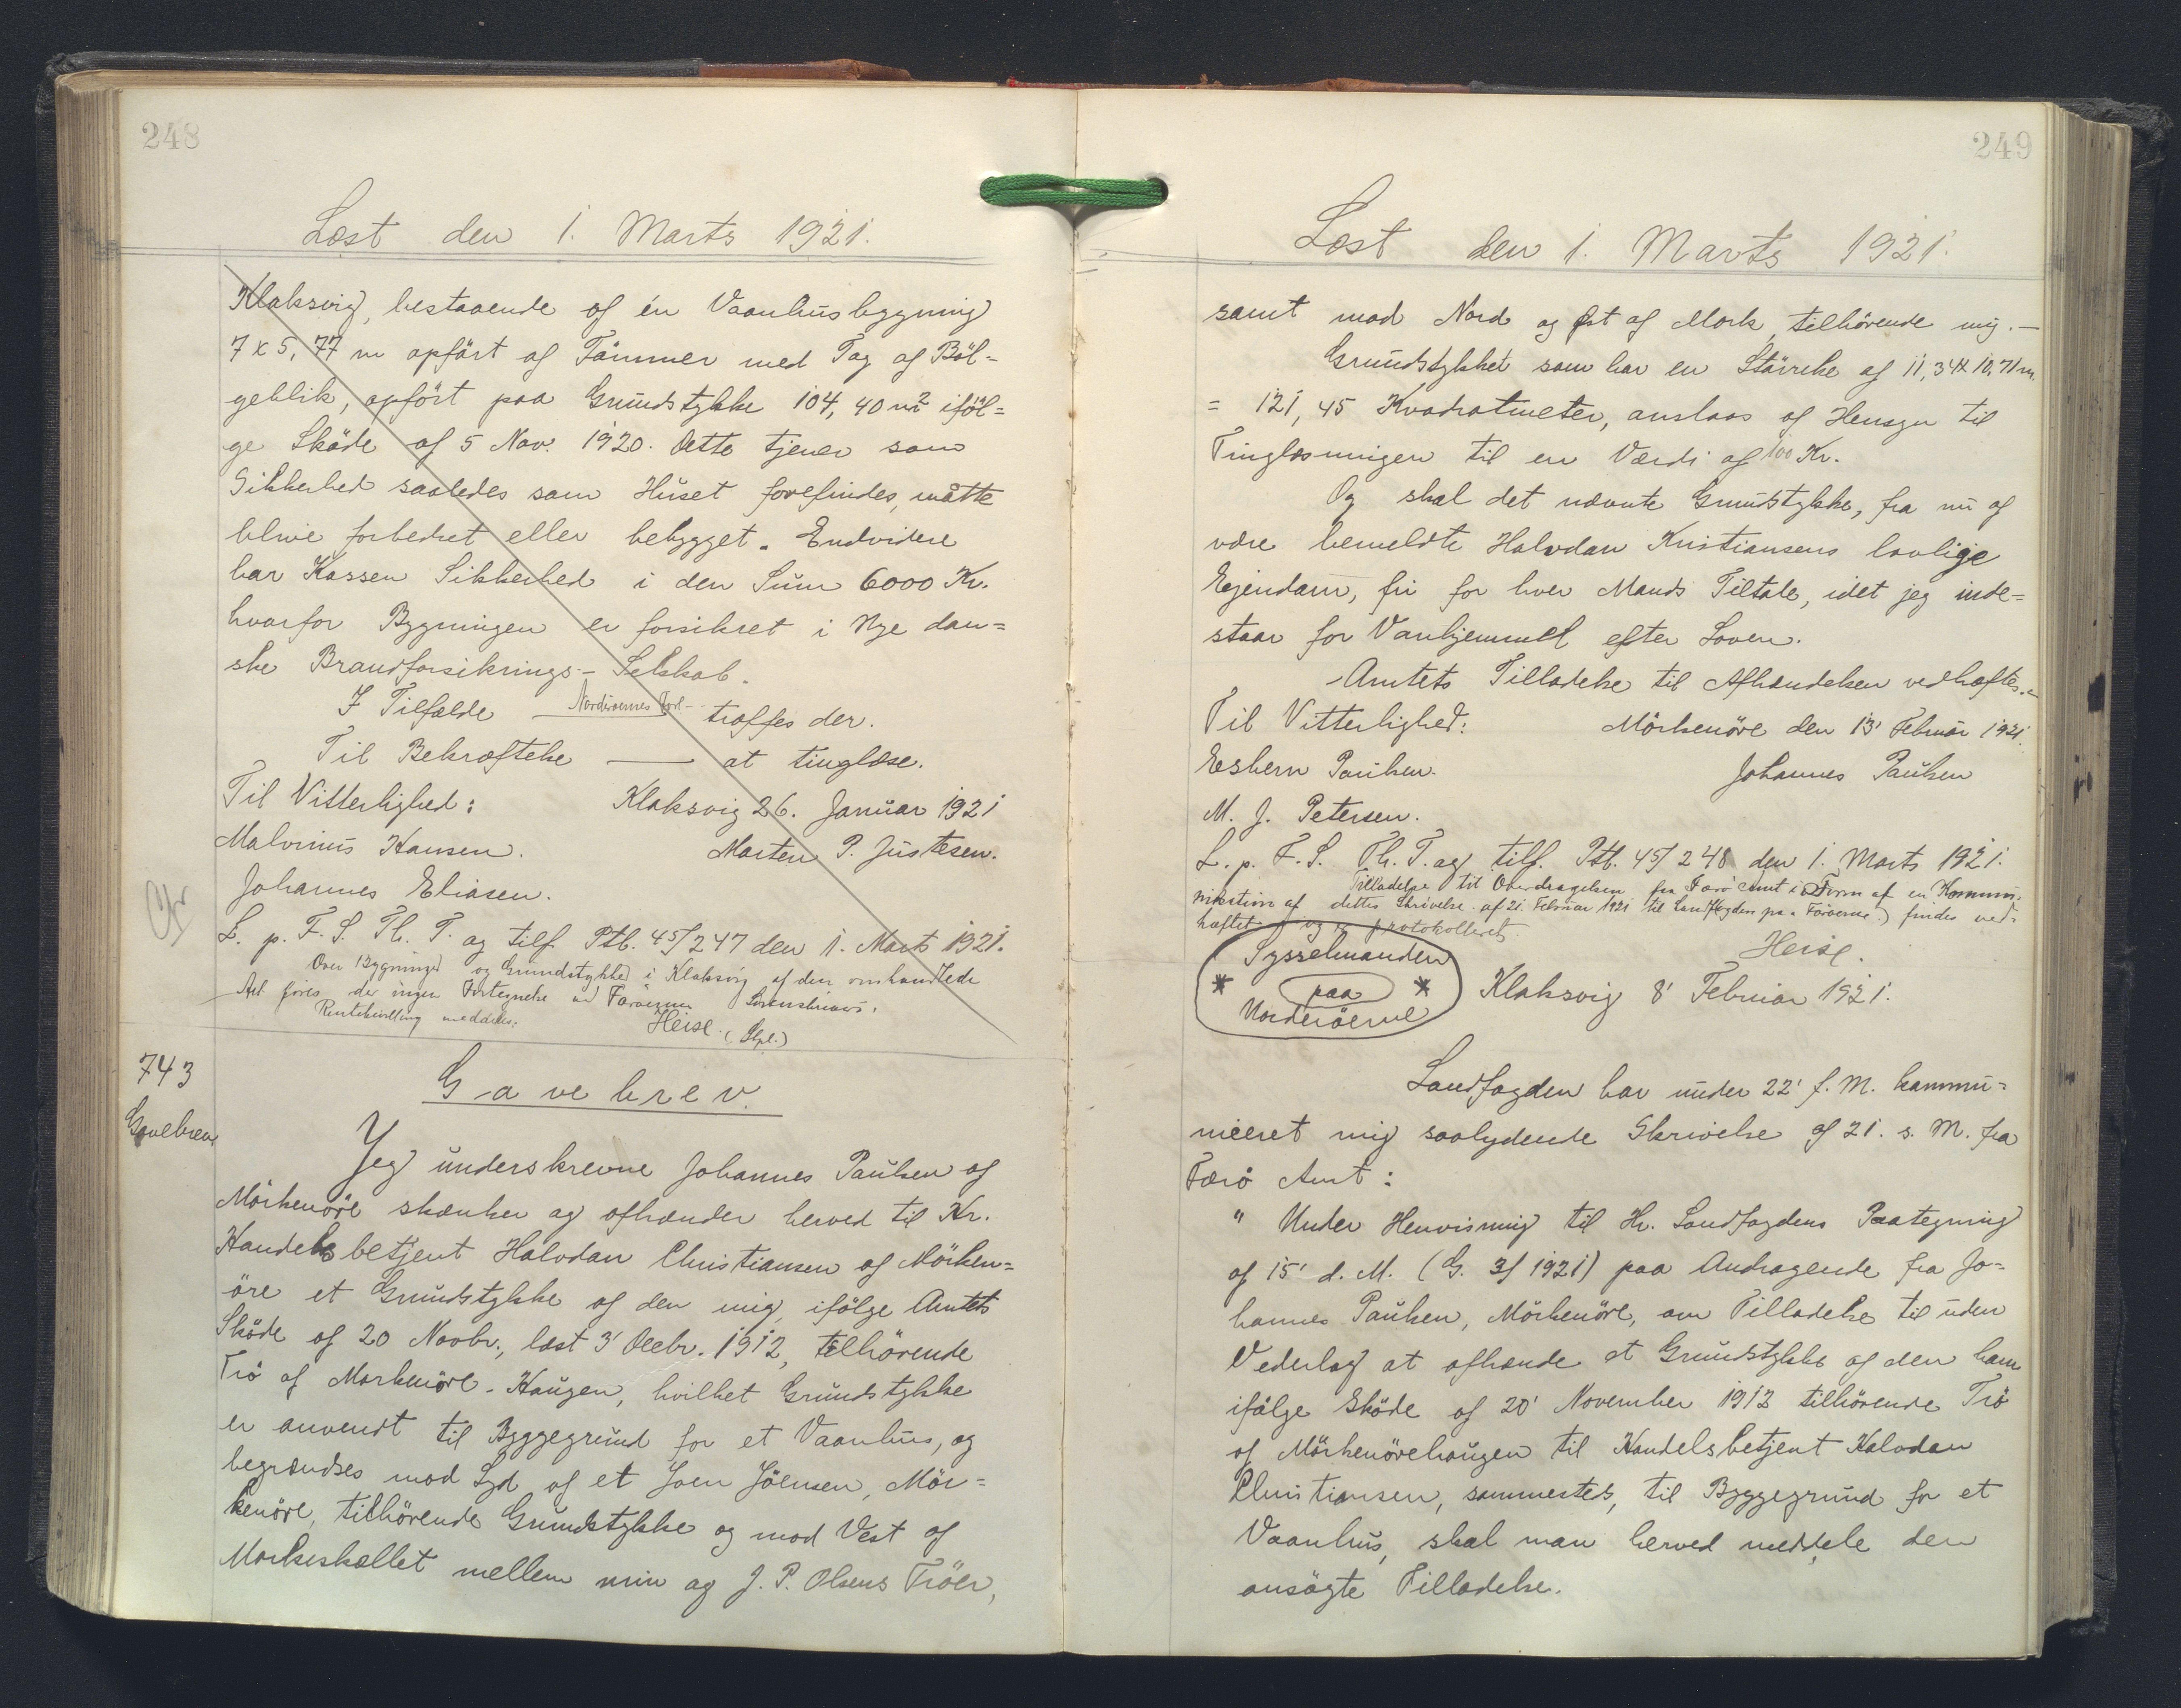 248
Læst den 1. Marts 1921.
Klaksvig, bestaaende af én Vaanhusbygning
7 x 5,77 m opført af Tømmer med Tag af Böl=
geblik, opført paa Grundstykke 104,40 m² iföl=
ge Sköde af 5 Nov. 1920. Dette tjener som
Sikkerhed saaledes som Huset forefindes, måtte
blive forbedret eller bebygget. Endvidere
har Kassen Sikkerhed i den Sum 6000 Kr.
hvorfor Bygningen er forsikret i Nye dan=
ske Brandforsikrings-Selskab.
I Tilfælde — Norderøernes — træffes der.
Til Bekræftelse — at tinglæse.
Til Vitterlighed: Klaksvig 26. Januar 1921
Malvinus Hansen. Morten P. Justesen.
Johannes Eliasen.
L. p. F. S. Th. T. og tilf. Ptb. 45/247 den 1. Marts 1921.
Over Bygninger og Grundstykker i Klaksvig af den omhandlede
Art föres der ingen Fortegnelse ved Færöernes Sorenskriveri.
meddeles.
Heise. (Stpl.)
743
Gavebrev
Gavebrev.
Jeg underskrevne Johannes Paulsen af
Mörkenöre skænker og afhænder herved til Hr.
Handelsbetjent Halvdan Christiansen af Mörken=
öre et Grundstykke af den mig, ifölge Amtets
Sköde af 20 Novbr., læst 3' Decbr. 1912, tilhörende
Trö af Morkenöre-Haugen, hvilket Grundstykke
er anvendt til Byggegrund for et Vaanhus, og
begrændses mod Syd af et Joen Jöensen, Mör=
kenöre, tilhörende Grundstykke og mod Vest af
Markeskællet mellem min og J. P. Olsens Tröer,
249
Læst den 1. Marts 1921.
samt mod Nord og Øst af Mark, tilhörende mig.—
Grundstykket som har en Störrelse af 11,34 x 10,71 m.
= 121,45 Kvadratmeter, anslaas af Hensyn til
Tinglæsningen til en Værdi af 100 Kr.
Og skal det nævnte Grundstykke, fra nu af
være bemeldte Halvdan Kristiansens lovlige
Ejendom, fri for hver Mands Tiltale, idet jeg inde=
staar for Vanhjemmel efter Loven.
Amtets Tilladelse til Afhændelsen vedhæftes.—
Til Vitterlighed: Mörkenöre den 13' Februar 1921.
Esbern Paulsen. Johannes Paulsen
M. J. Petersen.
L. p. F. S. Th. T. og tilf. Ptb. 45/248 den 1. Marts 1921.
Tilladelse til Overdragelsen fra Færö Amt i Form af en Kommu-
nikation af dettes Skrivelse af 21. Februar 1921 til Landfogden paa Färöerne) findes ved-
hæftet og protokolleret.
Heise.
Sysselmanden
* paa *
Norderöerne
Klaksvig 8' Februar 1921.
Landfogden har under 22' f. M. kommu=
niceret mig saalydende Skrivelse af 21. s. M. fra
Færö Amt:
" Under Henvisning til Hr. Landfogdens Paategning
af 15' d. M. (G. 3/1921) paa Andragende fra Jo=
hannes Paulsen, Mörkenöre, om Tilladelse til uden
Vederlag at afhænde et Grundstykke af den ham
ifölge Sköde af 20' November 1912 tilhörende Trö
af Mörkenörehaugen til Handelsbetjent Halvdan
Christiansen, sammesteds, til Byggegrund for et
Vaanhus, skal man herved meddele den
ansögte Tilladelse.